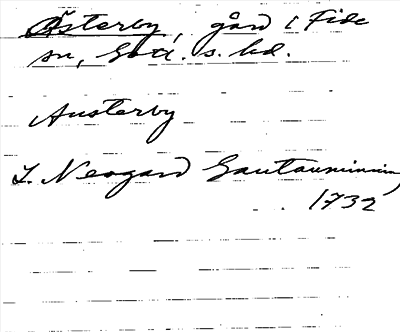 Österby, gård i Fide
sn, Gotl. s. hd.
Austerby
L. Neogard Gautauminning,
1732